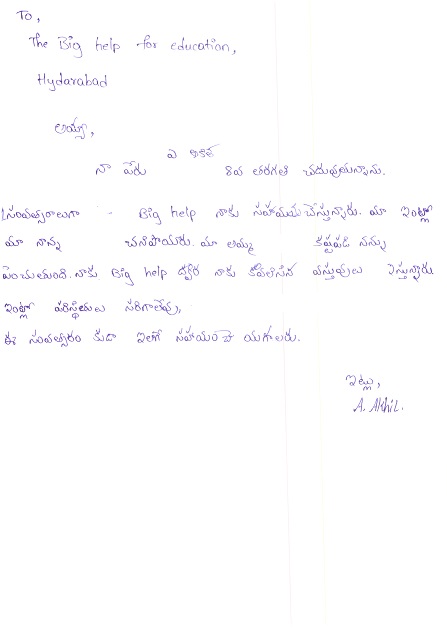 To,
The Big help for education,
Hydarabad
అయ్యా,
నా పేరు ఎ 8వ తరగతి చదువుతున్నాను.
సంవత్సరాలుగా Big help నాకు సహాయము చేస్తున్నారు. మా ఇంట్లో
మా నాన్న చనిపోయారు. మా అమ్మ కష్టపడి నన్ను
పెంచుతుంది. నాకు Big help ద్వార నాకు కావలిసిన వస్తువులు ఇస్తున్నారు
ఇంట్లో పరిస్థితులు సరిగాలేవు,
ఈ సంవత్సరం కుడా ఇలాగే సహాయం చే యగలరు.
ఇట్లు,
A. Akhil.